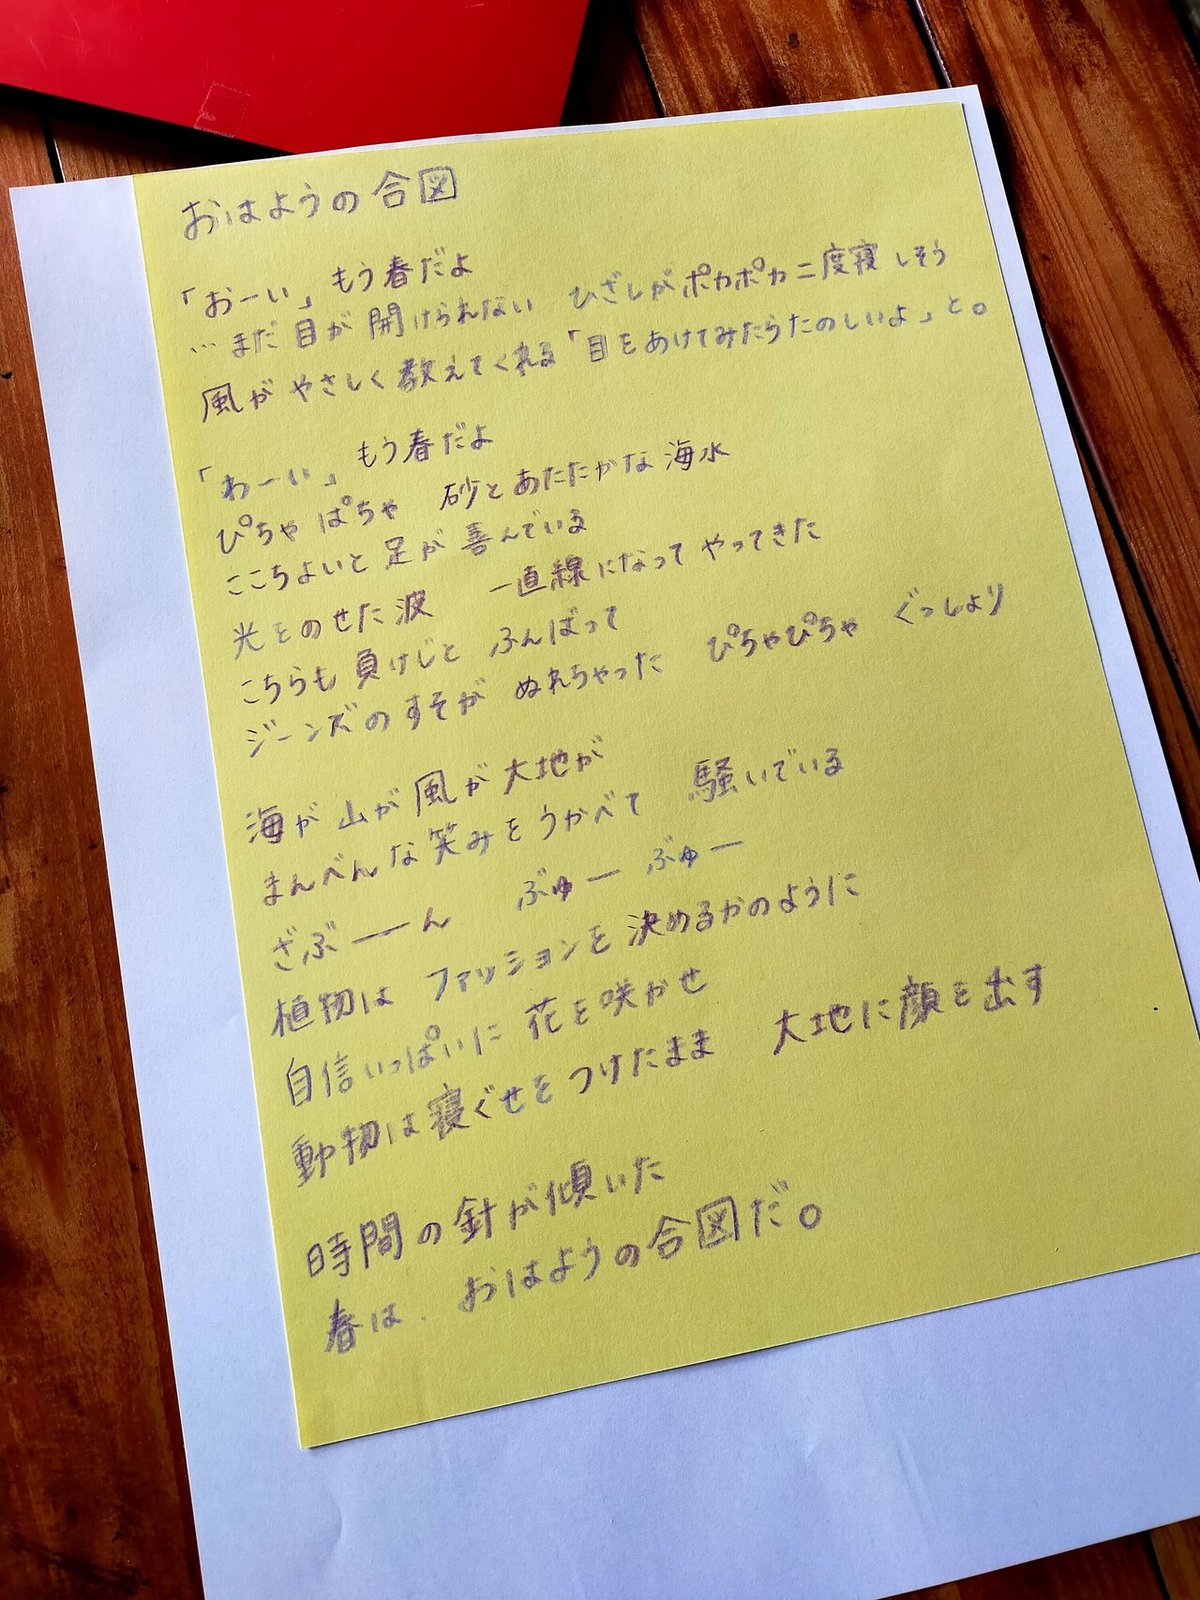 おはようの合図
「おーい」もう春だよ
…まだ目が開けられない　ひざしがポカポカ二度寝しそう
風がやさしく教えてくれる「目をあけてみたらたのしいよ」と。
「わーい」もう春だよ
ぴちゃぱちゃ　砂とあたたかな海水
ここちよいと足が喜んでいる
光をのせた波　一直線になってやってきた
こちらも負けじと　ふんばって
ジーンズのすそが　ぬれちゃった　ぴちゃぴちゃ　ぐっしょり
海が山が風が大地が
まんべんな笑みをうかべて　騒いでいる
ざぶーーん　ぶゅーぶゅー
植物は　ファッションを決めるかのように
自信いっぱいに花を咲かせ
動物は寝ぐせをつけたまま　大地に顔を出す
時間の針が傾いた
春は、おはようの合図だ。